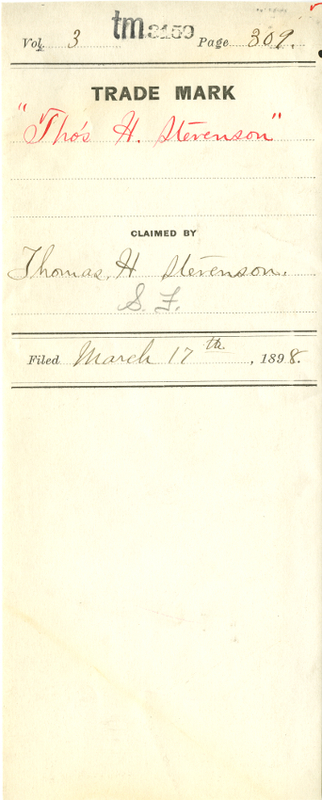 Vol. 3 tm 3159 Page 309.
TRADE MARK
"Tho's H. Stevenson"
CLAIMED BY
Thomas. H Stevenson.
S. F.
Filed March 17th , 1898.